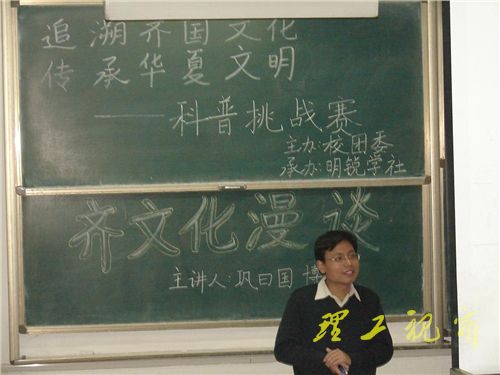 追溯齐国文化
传承华夏文明
——科普挑战赛
主办:校团委
承办:明锐学社
齐文化漫谈
主讲人:巩曰国 博
理工视窗